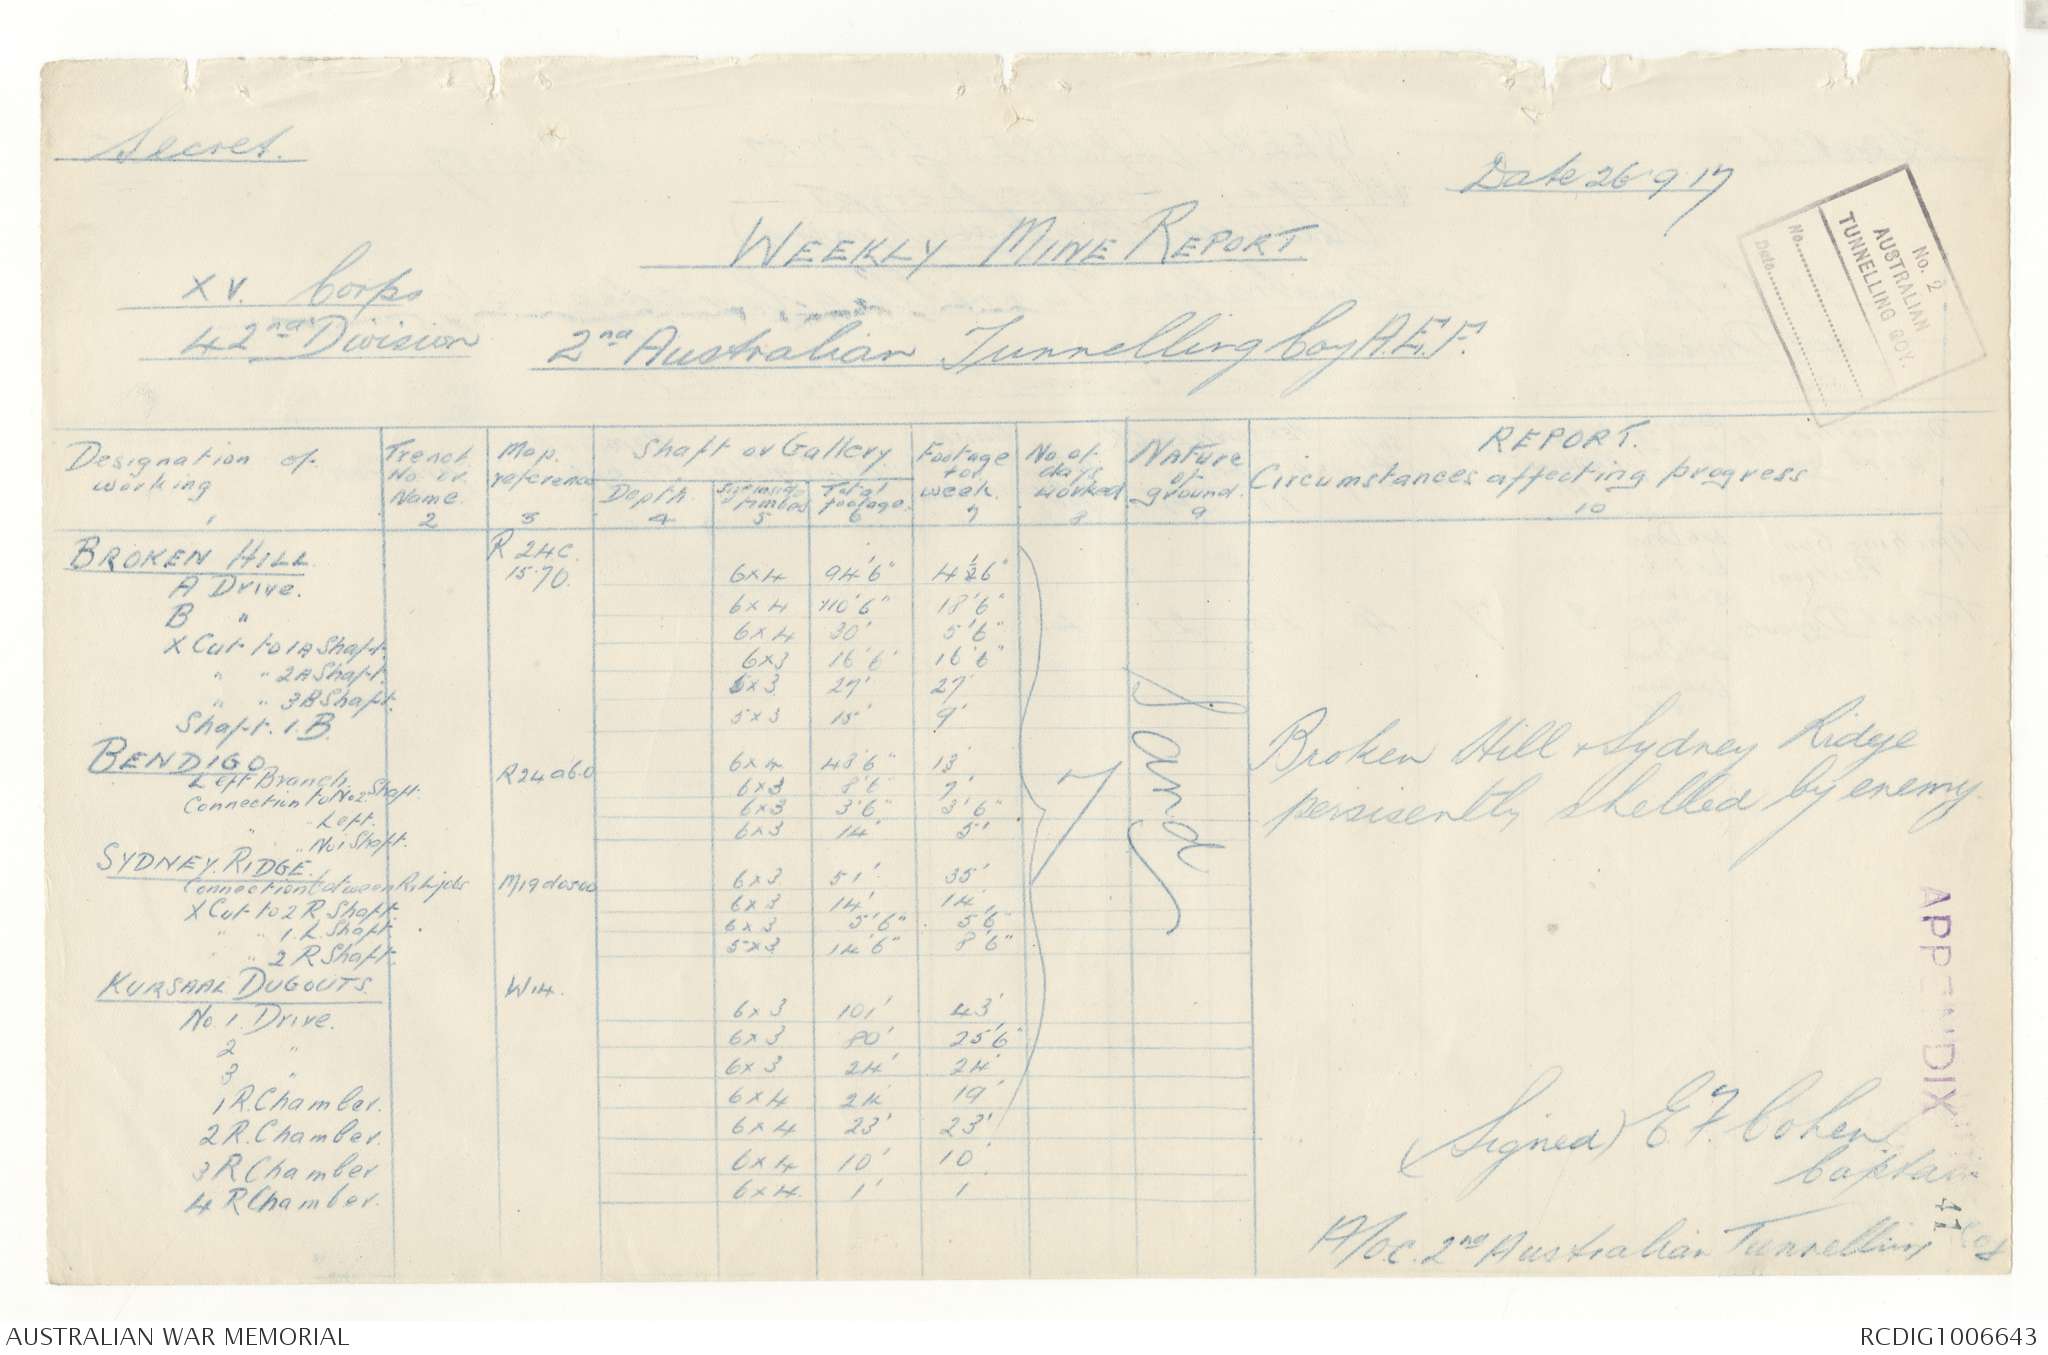 Secret.
Date 26.9.17
No. 2
AUSTRALIAN
TUNNELLING COY.
No.
Date
WEEKLY MINE REPORT.
XV. Corps
42nd Division
2nd Australian Tunnelling Coy A.E.F.
Designation of working 1
Trench No. or Name. 2
Map reference 3
Shaft or Gallery
Depth. 4
Size inside timbers 5
Total footage. 6
Footage for week. 7
No. of days worked 8
Nature of ground. 9
REPORT.
Circumstances affecting progress
10
BROKEN HILL. R 24C. 15.70.
A Drive. 6x4 94'6" 6"
B " 6x4 110'6" 18'6"
X Cut to 1A Shaft. 6x4 30' 5'6"
" " 2A Shaft. 6x3 16'6" 16'6"
" " 3B Shaft. x3 27' 27'
Shaft. 1.B. 5x3 15' 9'
BENDIGO R24a6.0
Left Branch. 6x4 43'6" 13'
Connection to No2 Shaft. 6x3 8'6 7'
" " Left. 6x3 3'6" 3'6"
" " No1 Shaft. 6x3 14' 5'
SYDNEY. RIDGE. M19d05.00
Connection between R. 6x3 51' 35'
X Cut to 2 R Shaft. 6x3 14' 14'
" " 1. L Shaft. 6x3 5'6" 5'6"
" " 2 R Shaft. 5x3 14'6" 8'6"
KURSAAL DUGOUTS. W14.
No. 1. Drive. 6x3 101' 43'
2 " 6x3 80' 25'6"
3 " 6x3 24' 24'
1 R. Chamber. 6x4 24 19'
2 R. Chamber. 6x4 23' 23'
3 R Chamber 6x4 10' 10'
4 R Chamber. 6x4. 1' 1
7
Sand
Broken Hill & Sydney Ridge
persisently shelled by enemy.
(Signed) E F. Cohen
Captain
A/O.C. 2nd Australian Tunnelling Coy
APPENDIX
41
AUSTRALIAN WAR MEMORIAL
RCDIG1006643